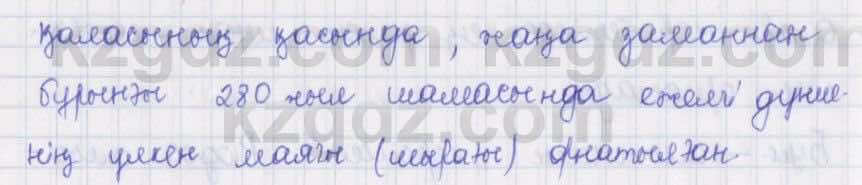 қаласының қасында, жаңа заманнан
бұрынғы 280 жыл шамасында ежелгі дүние-
нің үлкен маягы (шырағы) орнатылған
kzgdz.com
kzgdz.com